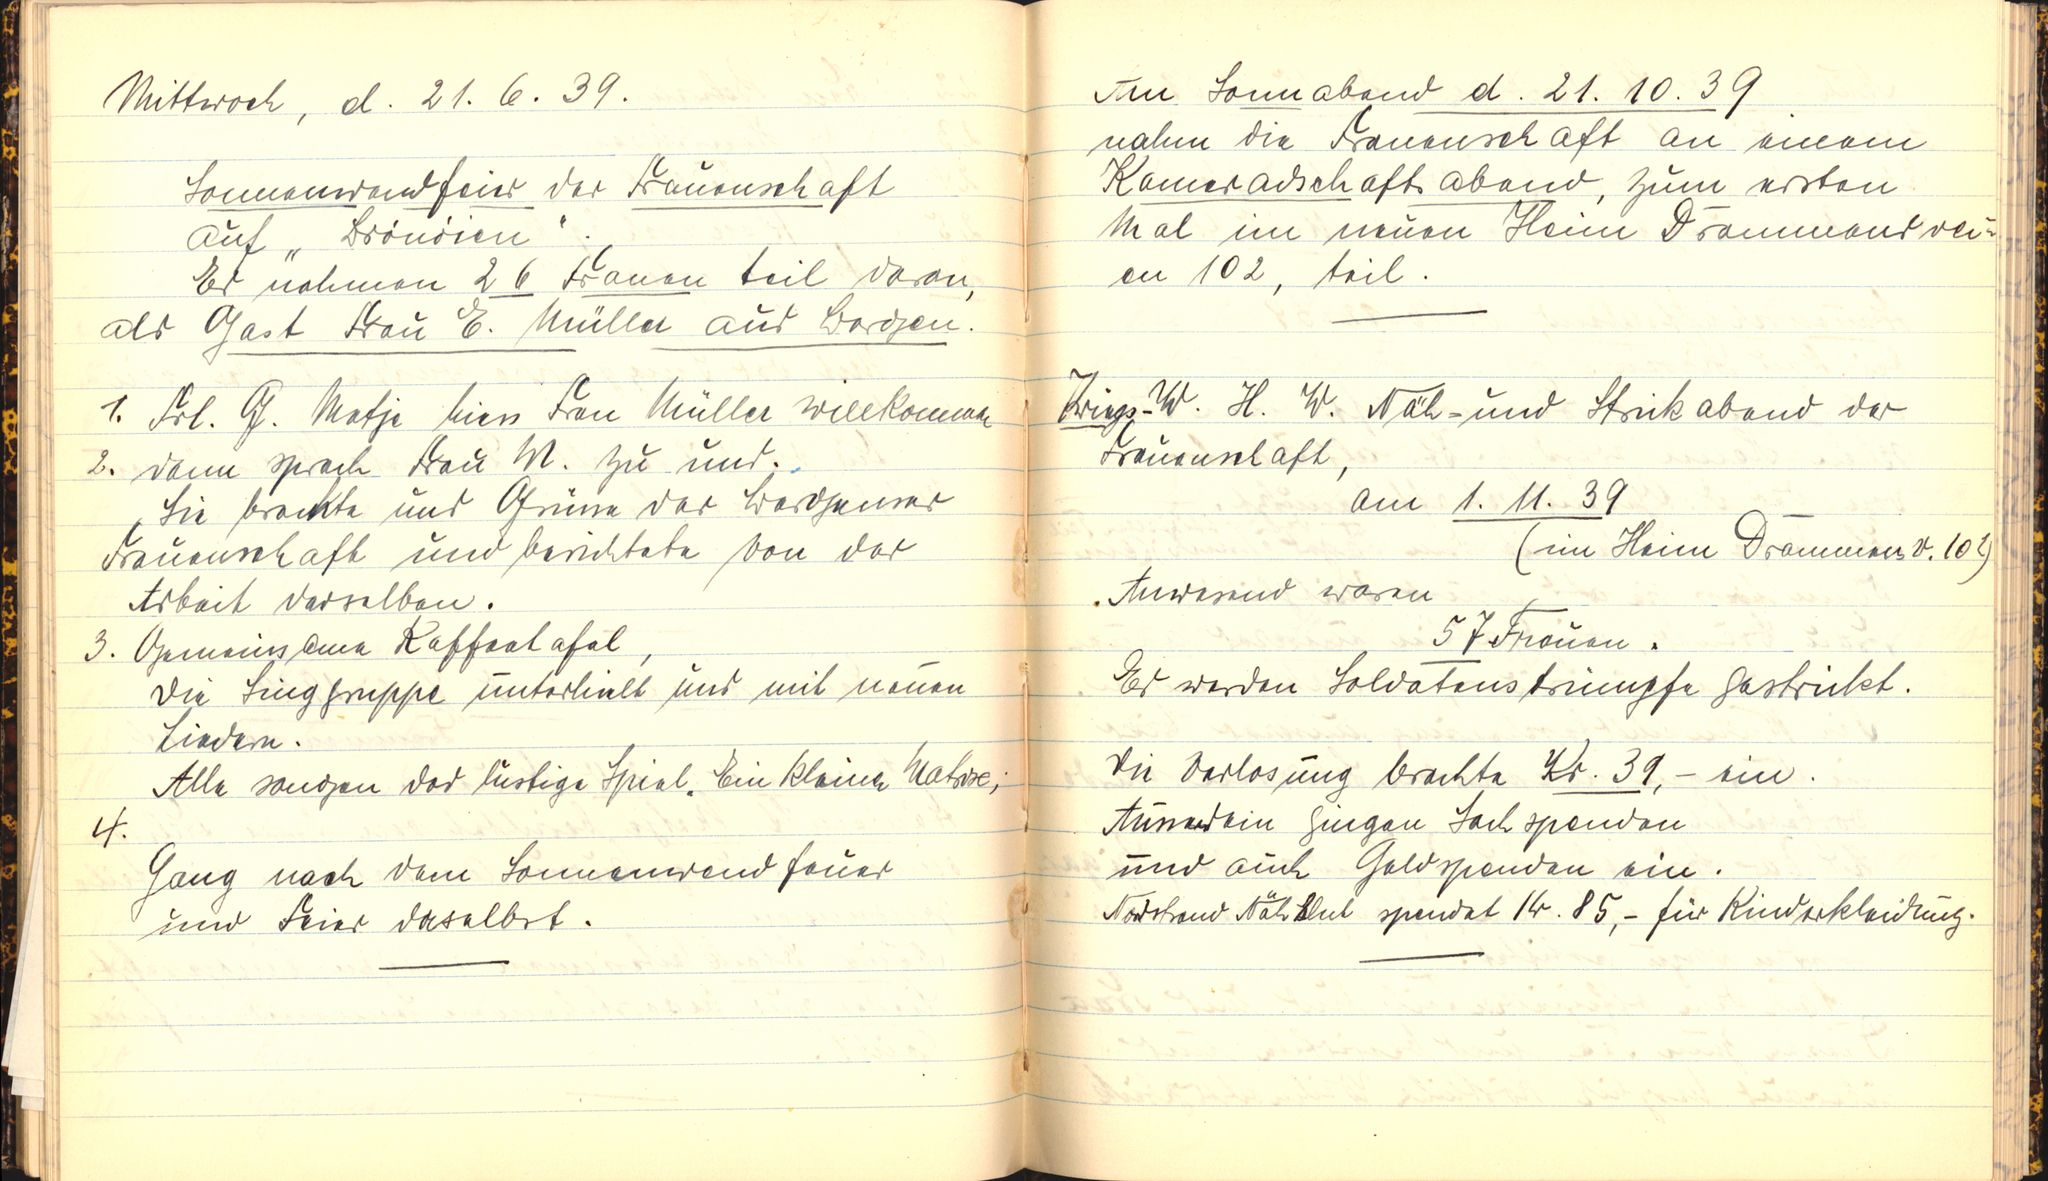 Mittwoch, d. 21. 6. 39.
Sonnenwendfeier der Frauenschaft
auf „Brönöien“.
Es nahmen 26 Frauen teil daran,
als Gast Frau E. Müller aus Bergen.
1. Frl. G. Matje hiess Frau Müller willkommen
2. dann sprach Frau M. zu uns.
Sie brachte uns Grüsse der Bergenser
Frauenschaft und berichtete von der
Arbeit derselben.
3. Gemeinsame Kaffeetafel,
die Singgruppe unterhielt uns mit neuen
Liedern.
Alle sangen das lustige Spiel „Ein kleine Matrose“,
4.
Gang nach dem Sonnenwendfeuer
und Feier daselbst.
Am Sonnabend d. 21. 10. 39
nahm die Frauenschaft an einem
Kameradschaftsabend, zum ersten
Mal im neuen Heim Drammensvei-
en 102, teil.
Kriegs-W. H. W. Näh- und Strickabend der
Frauenschaft,
am 1. 11. 39
(im Heim Drammensv. 102)
Anwesend waren
57 Frauen.
Es werden Soldatenstrümpfe gestrickt.
Die Verlosung brachte Kr. 39,- ein.
Ausserdem gingen Sachspenden
und auch Geldspenden ein.
Nordstrand Näh Klub spendet Kr. 85,- für Kinderkleidung.